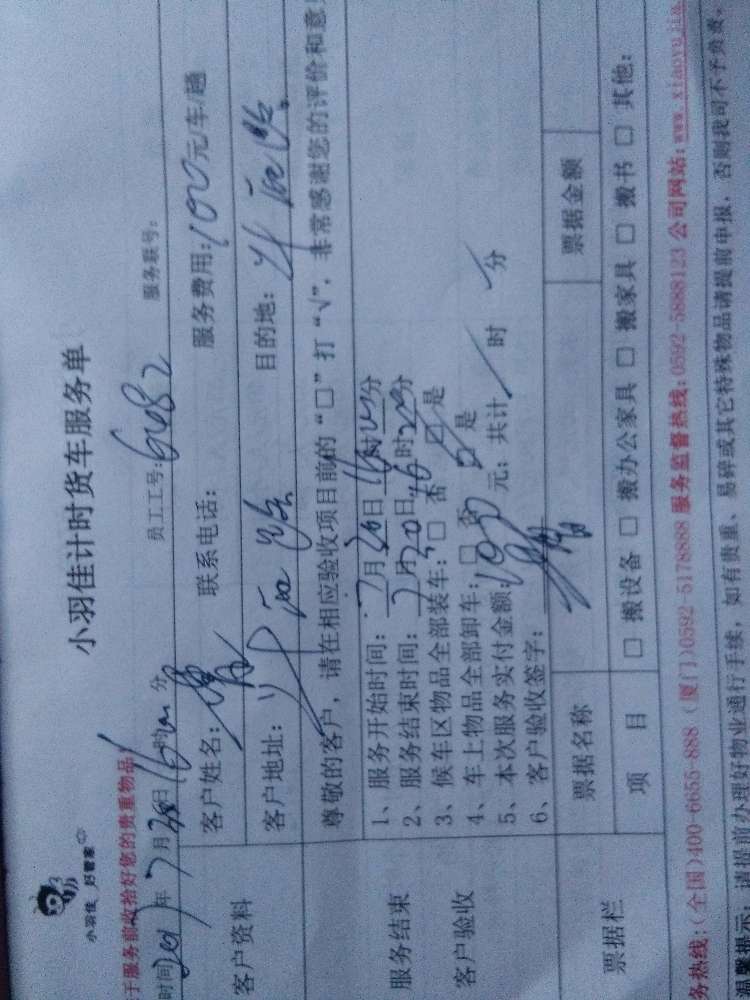 小羽佳 好管家
小羽佳计时货车服务单
于服务前收拾好您的贵重物品!
时间 年 7 月 日 16 时 分 员工工号: 6482 服务联号:
客户资料
客户姓名: 联系电话: 服务费用: 100 元/车/趟
客户地址: 目的地:
尊敬的客户, 请在相应验收项目前的 “□” 打 “√”, 非常感谢您的评价和意
服务结束
客户验收
1、服务开始时间: 7 月 20 日 16 时 分
2、服务结束时间: 7 月 20 日 16 时 分
3、候车区物品全部装车: □ 否 □ 是
4、车上物品全部卸车: □ 否 □ 是
5、本次服务实付金额: 100 元; 共计 时 分
6、客户验收签字:
票据栏
票据名称 票据金额
项 目 □ 搬设备 □ 搬办公家具 □ 搬家具 □ 搬书 □ 其他:
务热线: (全国)400-6655-888 (厦门)0592-5178888 服务监督热线: 0592-5888123 公司网站: www.xiaoyujia.
温馨提示: 请提前办理好物业通行手续, 如有贵重、易碎或其它特殊物品请提前申报, 否则我司不予负责。